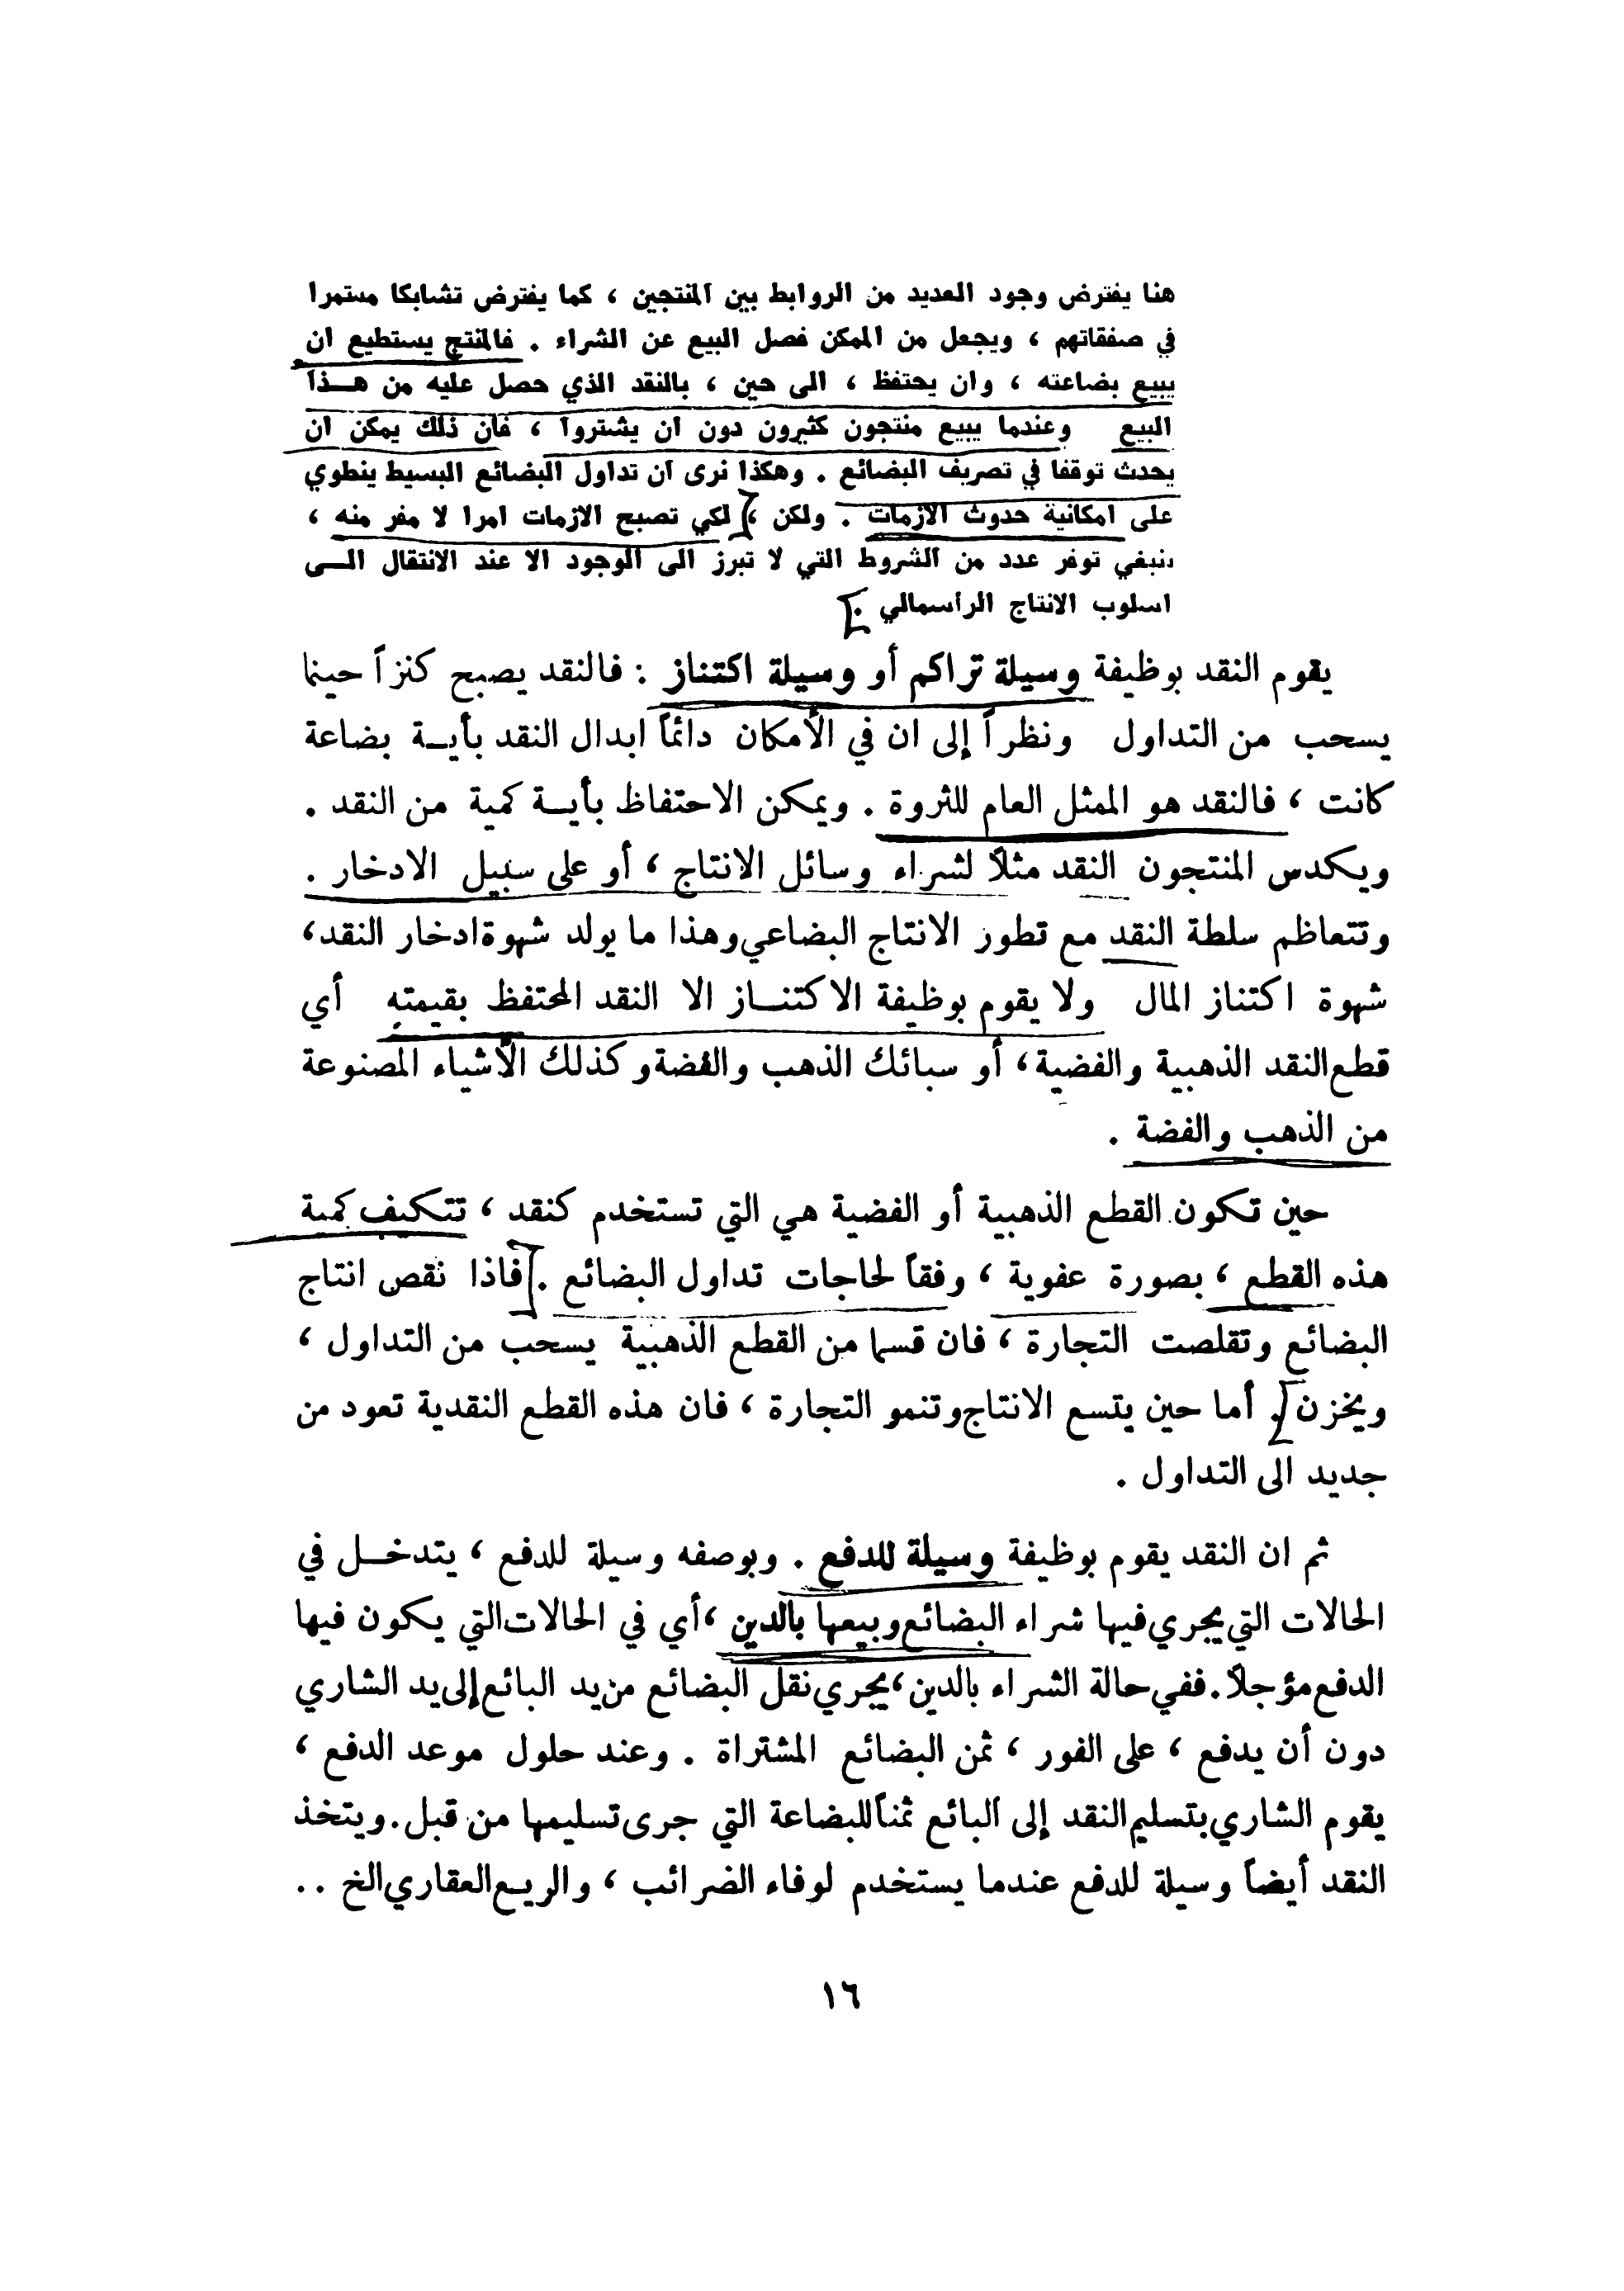 هنا يفترض وجود العديد من الروابط بين المنتجين ، كما يفترض تشابكا مستمرا
في صفقاتهم ، ويجعل من الممكن فصل البيع عن الشراء . فالمنتج يستطيع ان
يبيع بضاعته ، وان يحتفظ ، الى حين ، بالنقد الذي حصل عليه من هــذا
البيع وعندما يبيع منتجون كثيرون دون ان يشتروا ، فان ذلك يمكن ان
يحدث توقفا في تصريف البضائع . وهكذا نرى ان تداول البضائع البسيط ينطوي
على امكانية حدوث الازمات . ولكن ، لكي تصبح الازمات امرا لا مفر منه ،
ينبغي توفر عدد من الشروط التي لا تبرز الى الوجود الا عند الانتقال الــى
اسلوب الانتاج الراسمالي .
يقوم النقد بوظيفة وسيلة تراكم أو وسيلة اكتناز : فالنقد يصبح كنزاً حينما
يسحب من التداول ونظراً إلى ان في الأمكان دائماً ابدال النقد بأيــة بضاعة
كانت ، فالنقد هو الممثل العام للثروة . ويمكن الاحتفاظ بأيــة كمية من النقد .
ويكدس المنتجون النقد مثلاً لشراء وسائل الانتاج ، أو على سبيل الادخار .
وتتعاظم سلطة النقد مع تطور الانتاج البضاعي وهذا ما يولد شهوة ادخار النقد،
شهوة اكتناز المال ولا يقوم بوظيفة الاكتنــاز الا النقد المحتفظ بقيمته أي
قطع النقد الذهبية والفضية ، أو سبائك الذهب والفضة وكذلك الأشياء المصنوعة
من الذهب والفضة .
حين تكون القطع الذهبية أو الفضية هي التي تستخدم كنقد ، تتكيف كمية
هذه القطع ، بصورة عفوية ، وفقاً لحاجات تداول البضائع . فاذا نقص انتاج
البضائع وتقلصت التجارة ، فان قسما من القطع الذهبية يسحب من التداول ،
ويخزن . أما حين يتسع الانتاج وتنمو التجارة ، فان هذه القطع النقدية تعود من
جديد الى التداول .
ثم ان النقد يقوم بوظيفة وسيلة للدفع . وبوصفه وسيلة للدفع ، يتدخــل في
الحالات التي يجري فيها شراء البضائع وبيعها بالدين ، أي في الحالات التي يكون فيها
الدفع مؤجلاً . ففي حالة الشراء بالدين ، يجري نقل البضائع من يد البائع إلى يد الشاري
دون أن يدفع ، على الفور ، ثمن البضائع المشتراة . وعند حلول موعد الدفع ،
يقوم الشاري بتسليم النقد إلى البائع ثمناً للبضاعة التي جرى تسليمها من قبل . ويتخذ
النقد أيضاً وسيلة للدفع عندما يستخدم لوفاء الضرائب ، والريع العقاري الخ ..
١٦